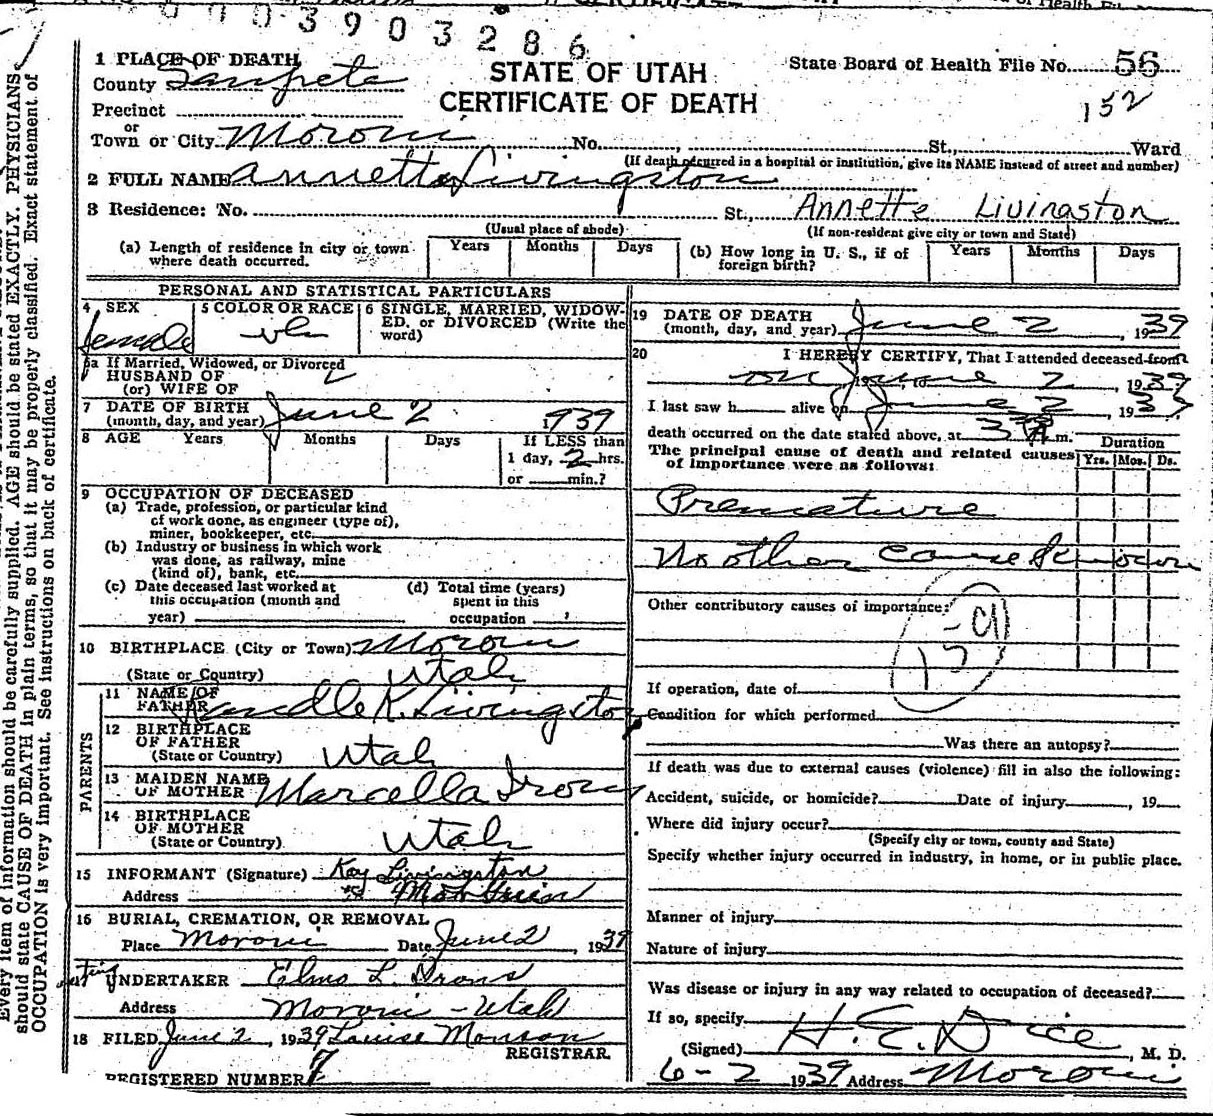 90039 03286
STATE OF UTAH
CERTIFICATE OF DEATH
State Board of Health File No. 56
152
1 PLACE OF DEATH
County Sanpete
Precinct
or
Town or City Moroni No. St., Ward
(If death occurred in a hospital or institution, give its NAME instead of street and number)
2 FULL NAME Annette Livingston
3 Residence: No. St., Annette Livingston
(Usual place of abode) (If non-resident give city or town and State)
(a) Length of residence in city or town where death occurred. Years Months Days
(b) How long in U. S., if of foreign birth? Years Months Days
PERSONAL AND STATISTICAL PARTICULARS
4 SEX female
5 COLOR OR RACE wh
6 SINGLE, MARRIED, WIDOWED, or DIVORCED (Write the word)
5a If Married, Widowed, or Divorced
HUSBAND OF
(or) WIFE OF
7 DATE OF BIRTH
(month, day, and year) June 2 1939
8 AGE Years Months Days If LESS than
1 day, 2 hrs.
or min.?
9 OCCUPATION OF DECEASED
(a) Trade, profession, or particular kind
of work done, as engineer (type of),
miner, bookkeeper, etc.
(b) Industry or business in which work
was done, as railway, mine
(kind of), bank, etc.
(c) Date deceased last worked at
this occupation (month and
year)
(d) Total time (years)
spent in this
occupation
10 BIRTHPLACE (City or Town) Moroni
(State or Country) Utah
PARENTS
11 NAME OF
FATHER K. Livingston
12 BIRTHPLACE
OF FATHER
(State or Country) Utah
13 MAIDEN NAME
OF MOTHER Marcella Irons
14 BIRTHPLACE
OF MOTHER
(State or Country) Utah
15 INFORMANT (Signature) Kay Livingston
Address
16 BURIAL, CREMATION, OR REMOVAL
Place Moroni Date June 2, 1939
acting UNDERTAKER Elmo L. Irons
Address Moroni - Utah
18 FILED June 2, 1939 Louise Monson
REGISTRAR.
REGISTERED NUMBER 7
19 DATE OF DEATH
(month, day, and year) June 2, 1939
20 I HEREBY CERTIFY, That I attended deceased from
on June 2, 1939
I last saw h alive on June 2, 1939
death occurred on the date stated above, at 3 A m.
The principal cause of death and related causes
of importance were as follows: Duration
Yrs. Mos. Ds.
Premature
No other cause known
Other contributory causes of importance:
If operation, date of
Condition for which performed
Was there an autopsy?
If death was due to external causes (violence) fill in also the following:
Accident, suicide, or homicide? Date of injury , 19
Where did injury occur?
(Specify city or town, county and State)
Specify whether injury occurred in industry, in home, or in public place.
Manner of injury
Nature of injury
Was disease or injury in any way related to occupation of deceased?
If so, specify
(Signed) H. E. Dice, M. D.
6-2 1939 Address Moroni
Every item of information should be carefully supplied. AGE should be stated EXACTLY. PHYSICIANS
should state CAUSE OF DEATH in plain terms, so that it may be properly classified. Exact statement of
OCCUPATION is very important. See instructions on back of certificate.